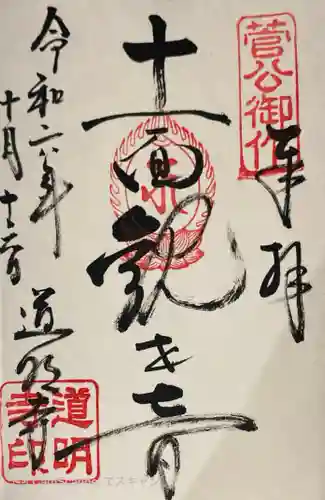 菅公御作
奉拝
十一面観世音
令和六年
十月十六日
道明寺
道明
寺印
でスキャン